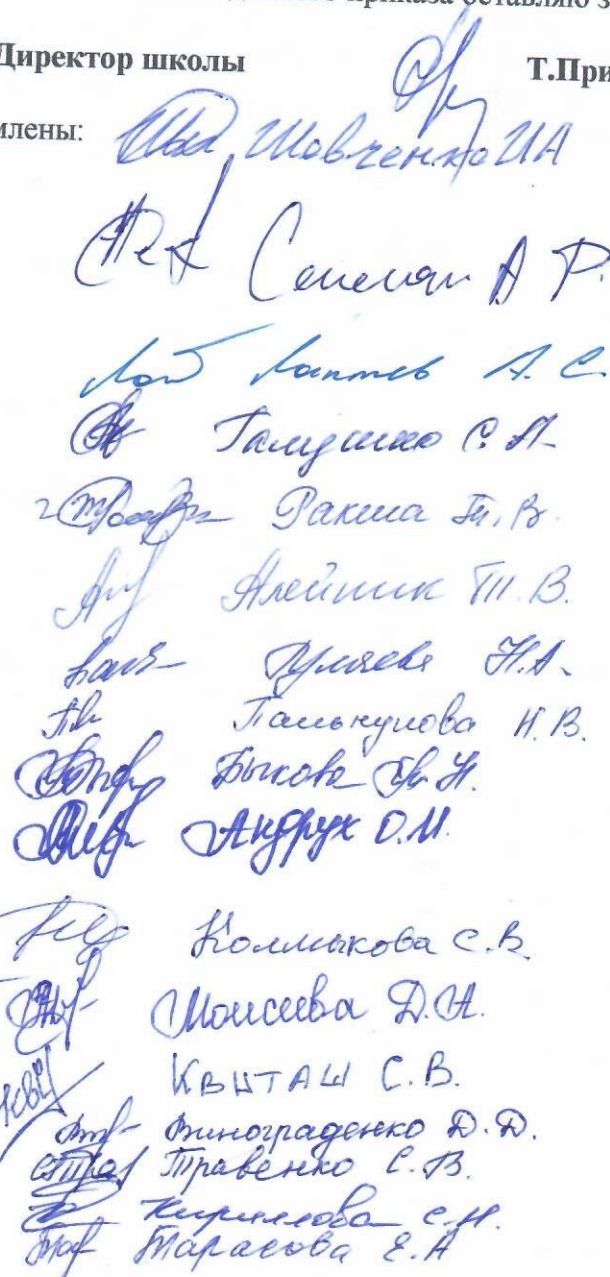 приказа оставляю з
Директор школы Т.При
илены: Шевченко И А
А Р.
Лаптев А. С.
Галушко С. А.
Ракша Т. В.
Алейник Т. В.
Н.А.
Н. В.
Быкова Н.
Андрух О.М.
Колмыкова С.В
Моисеева Д. А.
КВИТАШ С. В.
Винограденко Д. Д.
Травенко С. В.
Кириллова С. Н.
Тарасова Е. А